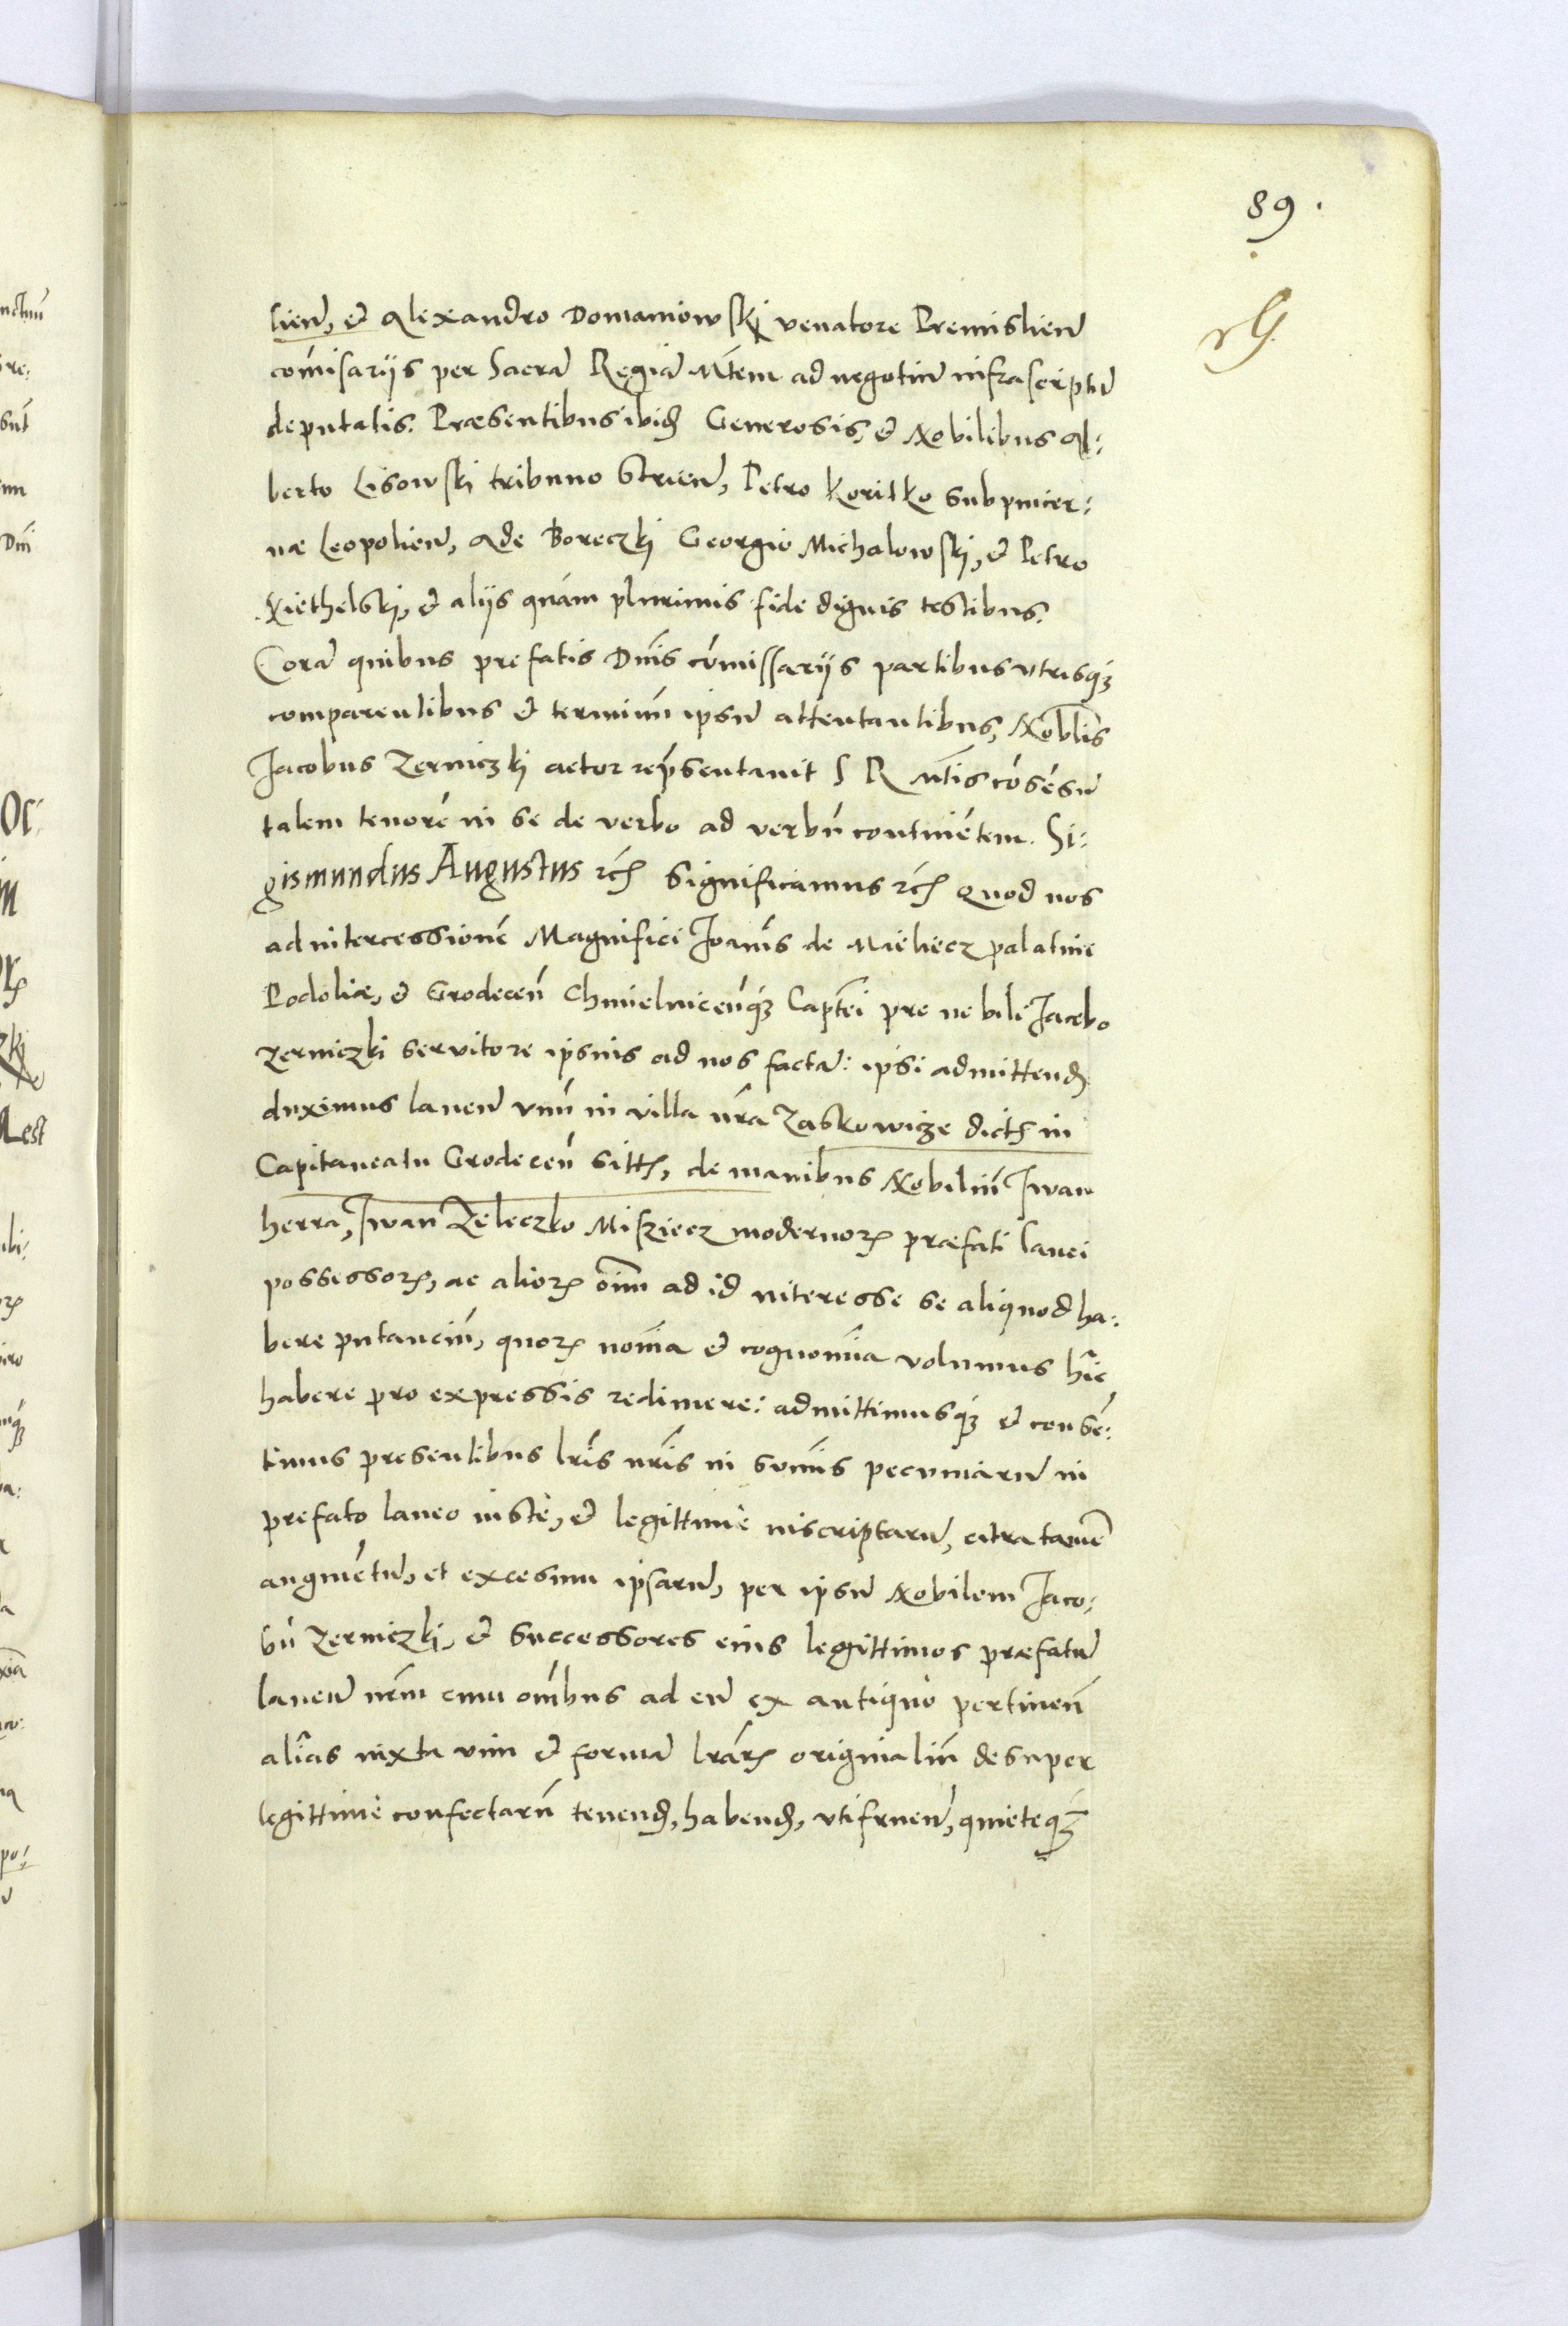 89.
lien̄, et Alexandro Domaniowskj venatore Premislien̄
com̄isarijs per Sacrā Regiā Mtem̄ ad negotiū infrascriptū
deputatis. Præsentibus ibid Generosis, et Nobilibus Al:
berto Lisowski tribuno Strien̄, Petro Koritko Subpincer:
næ Leopolien̄, Ade Boreczkj Georgio Michalowskj, et Petro
Kiethelskj, et alijs quàm plurimis fide dignis testibus.
Corā quibus prefatis Dnīs com̄issarijs partibus vtrisqꝫ
comparentibus et terminū ipsū attentantibus, Noblīs
Jacobus Zerniczkj actor repn̄sentauit S R Mtīs cōsēsū
talem tenorē in se de verbo ad verbū continētem. Si:
gismundus Augustus rcꝭ Significamus rcꝭ Quod nos
ad intercessionē Magnifici Joan̄is de Mieliecz palatini
Podoliæ, et Grodecen̄ Chmielnicen̄qꝫ Captēi pro nobili Jacobo
Zerniczkj servitore ipsius ad nos factā: ipsi admittend
duximus laneū vnū in villa nrā Zaskowicze dictꝭ in
Capitaneatu Grodecen̄ sittꝭ, de manibus Nobiliū Iwan
herra, Iwan Zeleczko Misziecz modernoꝝ præfati lanei
possessoꝝ, ac alioꝝ oīm ad id interesse se aliquod ha:
bere putanciū, quoꝝ noīa et cognomīa volumus hīc
habere pro expressis redimere: admittimusqꝫ et consē:
timus presentibus lrīs nrīs in som̄is pecuniarū in
prefato laneo iustè, et legittimè inscriptarū, citra tamē
augmētū, et excesum ipsarū, per ipsū Nobilem Jaco:
bū Zerniczkj, et Successores eius legittimos præfatū
laneū nrm̄ cum om̄ibus ad eū ex antiquo pertinen̄
aliās iuxta vim et formā lrāꝝ originaliū desuper
legittimè confectarū tenend, habend, vtifruen̄, quieteqꝫ